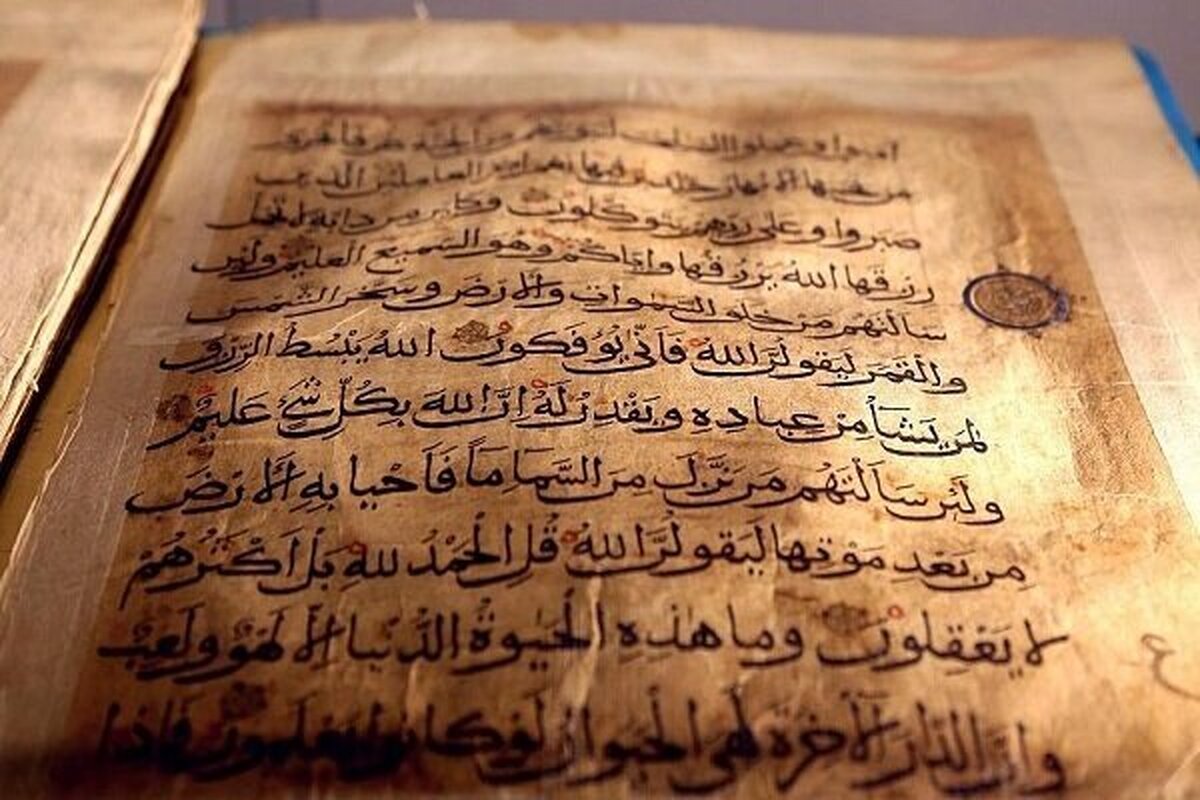 آمنوا وعملوا الصالحات لنبوئنهم من الجنة غرفا تجري
من تحتها الانهار خالدين فيها نعم اجر العاملين الذين
صبروا وعلى ربهم يتوكلون وكاين من دابة لا تحمل
رزقها الله يرزقها واياكم وهو السميع العليم ولئن
سالتهم من خلق السموات والارض وسخر الشمس
والقمر ليقولن الله فانى يؤفكون الله يبسط الرزق
لمن يشا من عباده ويقدر له ان الله بكل شئ عليم
ولئن سالتهم من نزل من السما ما فاحيا به الارض
من بعد موتها ليقولن الله قل الحمد لله بل اكثرهم
لا يعقلون وما هذه الحيوة الدنيا الا لهو ولعب
وان الدار الآخرة لهي الحيوان لو كانوا يعلمون فاذا
ع